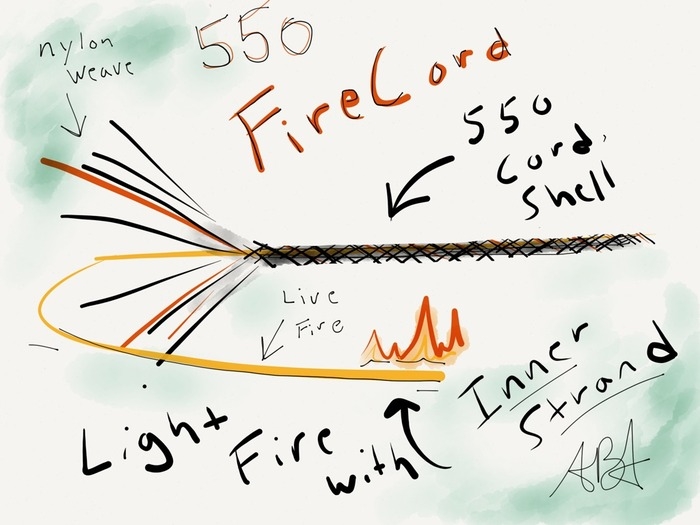 550
FireCord
nylon
weave
550
Cord,
Shell
Live
Fire
Light Fire with
Inner
Strand
ABA